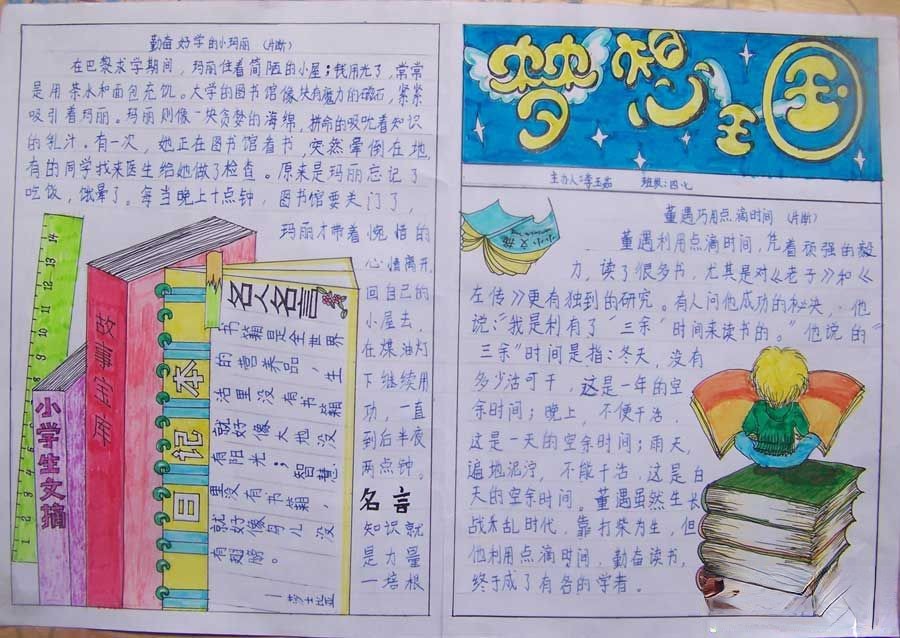 勤奋好学的小玛丽（片断）
在巴黎求学期间，玛丽住着简陋的小屋；钱用光了，常常
是用茶水和面包充饥。大学的图书馆像块有魔力的磁石，紧紧
吸引着玛丽。玛丽则像一块贪婪的海绵，拼命的吸吮着知识
的乳汁。有一次，她正在图书馆看书，突然晕倒在地，
有的同学找来医生给她做了检查。原来是玛丽忘记了
吃饭，饿晕了。每当晚上十点钟，图书馆要关门了，
玛丽才带着惋惜的
心情离开，
回自己的
小屋去，
在煤油灯
下继续用
功，一直
到后半夜
两点钟。
名言
知识就
是力量
一培根
小学生文摘
故事王国
日记本
名人名言
书籍是全世界
的营养品，生
活里没有书籍，
就好像大地没
有阳光；智慧
里没有书籍，
就好像鸟儿没
有翅膀。
—莎士比亚
梦想王国
主办人：李玉茹 班级：四·七
小小文摘
董遇巧用点滴时间（片断）
董遇利用点滴时间，凭着顽强的毅
力，读了很多书，尤其是对《老子》和《
左传》更有独到的研究。有人问他成功的秘决，他
说：“我是利有了“三余”时间来读书的。”他说的“
三余”时间是指：冬天，没有
多少活可干，这是一年的空
余时间；晚上，不便干活，
这是一天的空余时间；雨天，
遍地泥泞，不能干活，这是白
天的空余时间。董遇虽然生长
战末乱时代，靠打柴为生，但
他利用点滴时间，勤奋读书，
终于成了有各的学者。